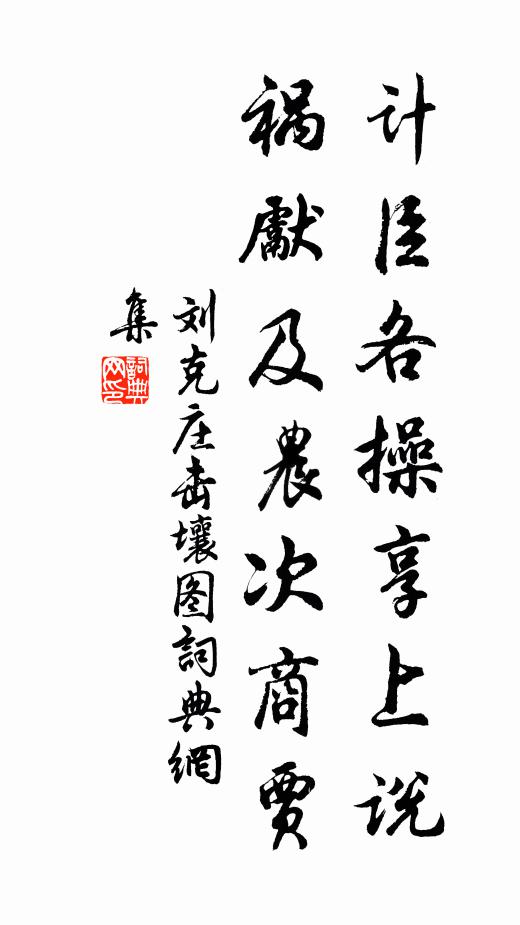 计臣各操享上说
祸獻及農次商賈
刘克庄击壤图詞典網
集
詞典網印